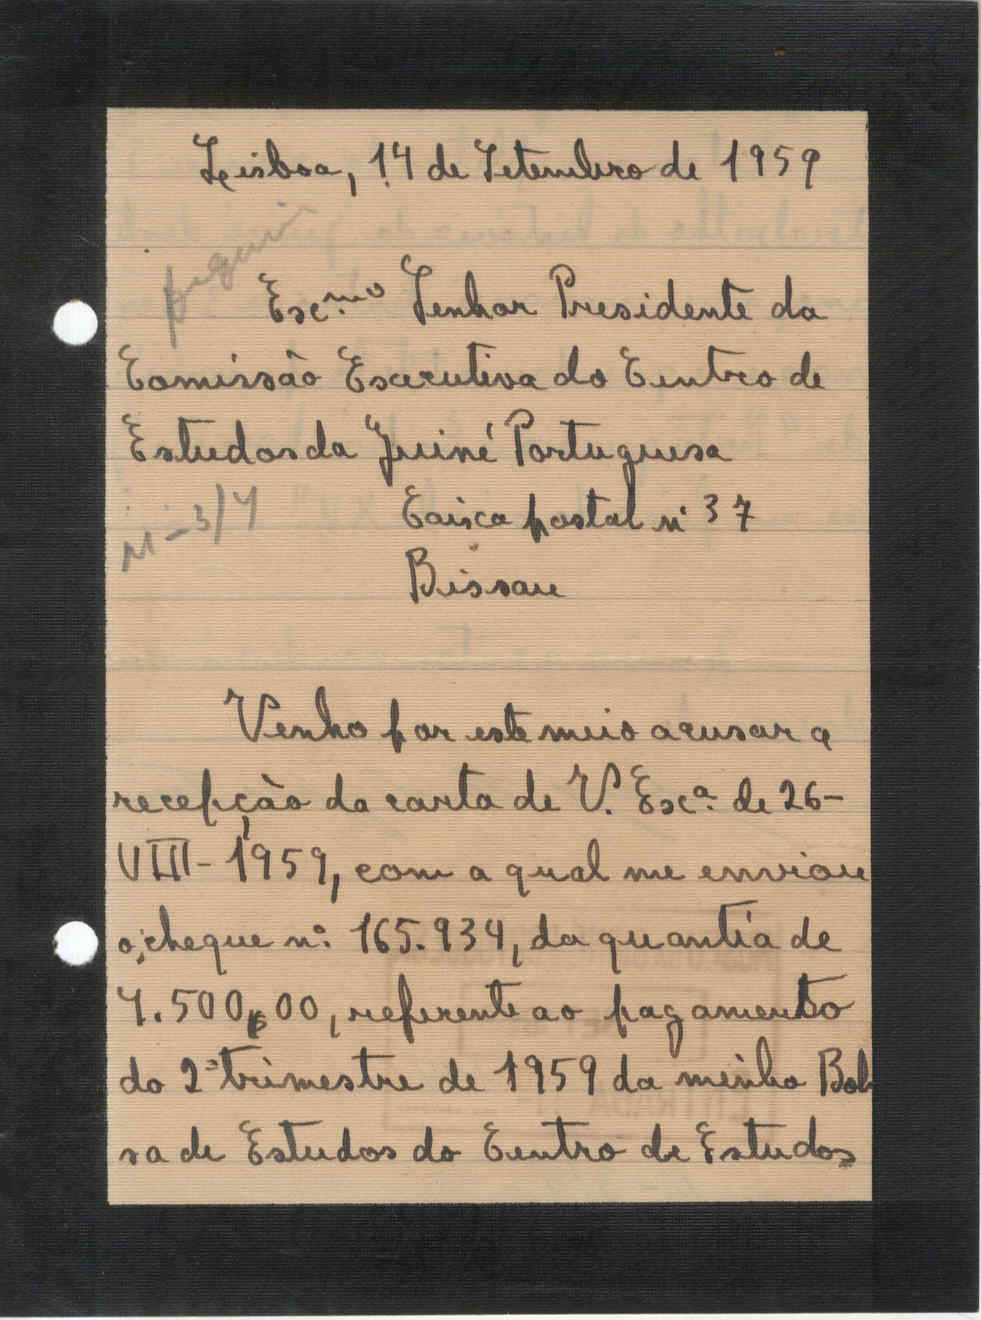 Lisboa, 14 de Setembro de 1959
Exc.mo Senhor Presidente da
Comissão Executiva do Centro de
Estudos da Guiné Portuguesa
M-3/4
Caixa postal nº 37
Bissau
Venho por este meio acusar a
recepção da carta de V. Exca. de 26-
VIII-1959, com a qual me enviou
o cheque nº. 165.934, da quantia de
4.500$00, referente ao pagamento
do 2º trimestre de 1959 da minha Bol
sa de Estudos do Centro de Estudos